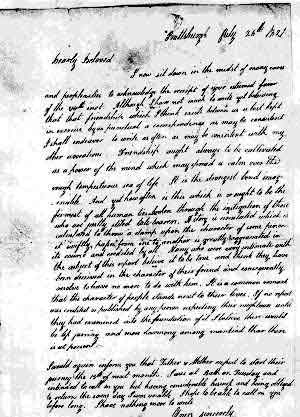 Prattsburgh July 26th 1821
Dearly Beloved
I now sit down in the midst of many cares
and perplexities to acknowledge the receipt of your esteemed favour
of the inst. Although I have not much to write yet believing
that that friendship which I think exists between us is best kept
in exercise by as punctual a correspondence as may be consistent
I shall endeavor to write as often as may be consistent with my
other avocations. Friendship ought always to be cultivated
as a power of the mind which may spread a calm over the
rough tempestuous sea of life. It is the strongest bond
And yet how often is this which is
of all human through the mitigation of those
who are justly styled talebearers. A story is circulated which is
calculated to throw a damp upon the character of some person
it swiftly from one to another is greatly exaggerated in
its course and credited by all. Many who were intimate with
the subject of this report believe it to be true and think they have
been deceived in the character of their friend and consequently
resolve to have no more to do with him. It is a common remark
that the character of people stands next to their lives. If no report
was credited or published by any person
they had examined into the foundation of it I believe there would
be less jarring and more harmony among mankind than there
is at present.
I would again inform you that Father & Mother expect to start their
journey the next month. I was at Bath on Tuesday and
intended to call on you but having considerable business and being obliged
to return the same day I was unable. I hope to be able to call on you
before long. I have nothing more to write
Yours sincerely